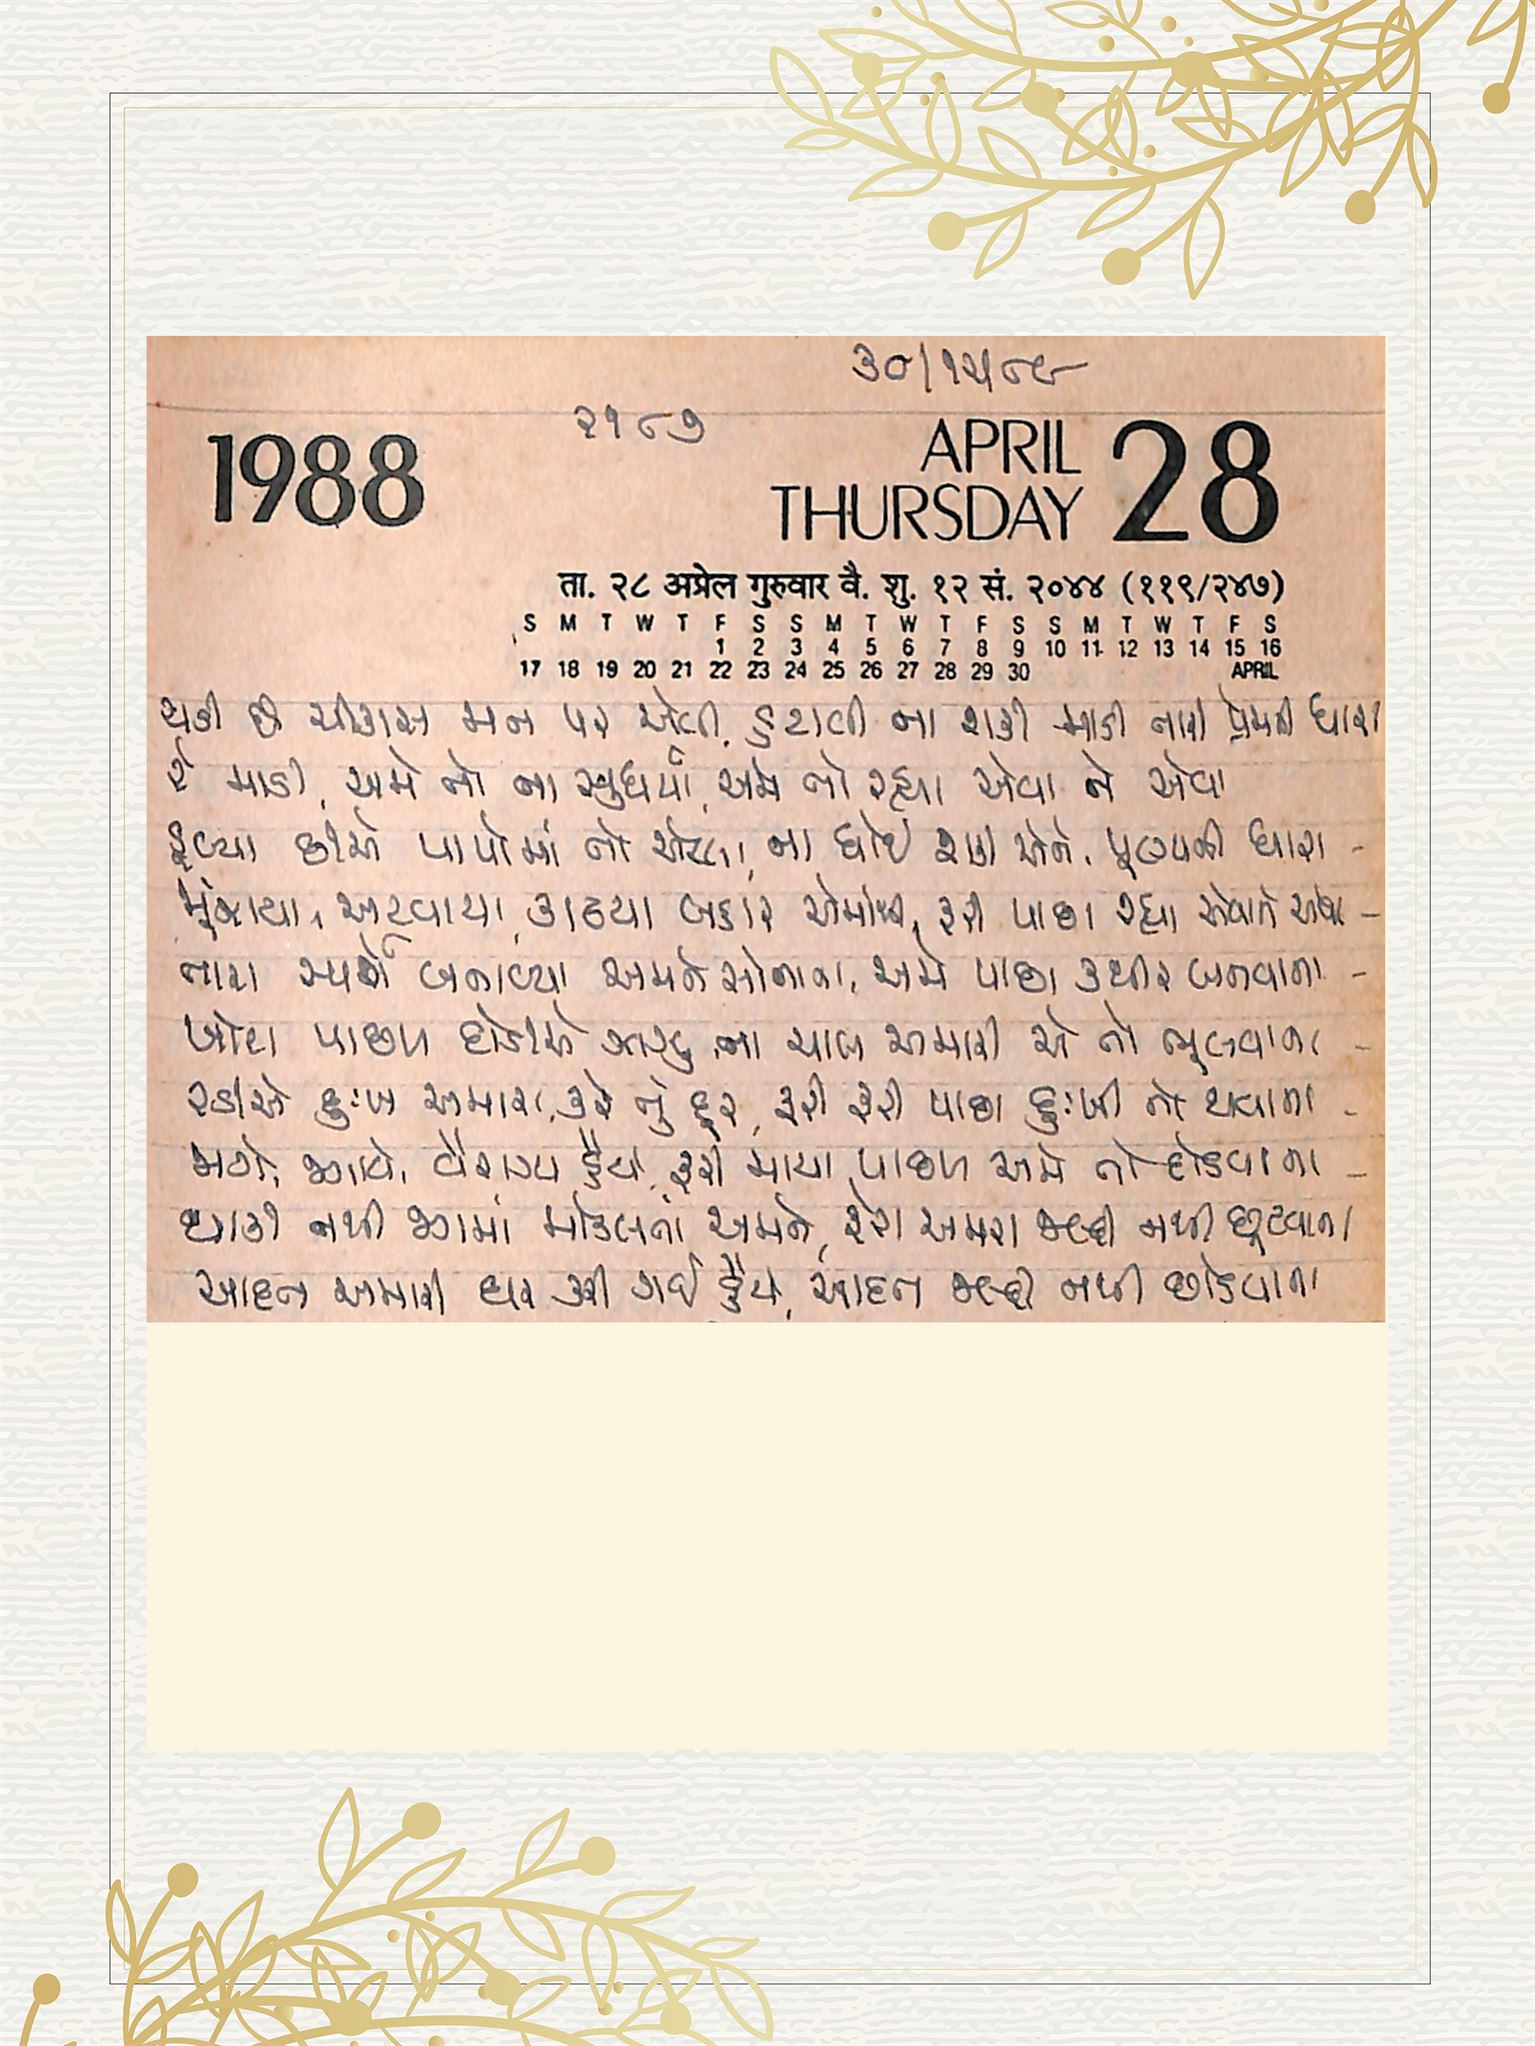 ૩૦/૧૨/૮૯
૨૧૮૭
1988
APRIL 28
THURSDAY
ता. २८ अप्रेल गुरुवार वै. शु. १२ सं. २०४४ (११९/२४७)
S M T W T F S S M T W T F S S M T W T F S
1 2 3 4 5 6 7 8 9 10 11 12 13 14 15 16
17 18 19 20 21 22 23 24 25 26 27 28 29 30 APRIL
ચડી છે ચીકાસ મન પર એવી, હટાવી ના શકી માડી તારી પ્રેમની ધારા
રે માડી, અમે તો ના સુધર્યા, અમે તો રહ્યા એવા ને એવા
ડૂબ્યા છીએ પાપોમાં તો એટલા, ના ધોઈ શકી એને, પુણ્યની ધારા -
મૂંઝાયા, અટવાયા, કાઢયા બહાર એમાંથી, ફરી પાછા રહ્યા એવાને એવા -
તારા સ્પર્શે બનાવ્યા અમને સોનાના, અમે પાછા કથીર બનવાના -
ખોટા પાછળ દોડીએ ઝાઝું, ના ચાલ અમારી એ તો ભૂલવાના -
રડીએ દુઃખ અમારા, કરે તું દૂર, ફરી ફરી પાછા દુઃખી તો થવાના -
ભાગે, જાગે, વૈરાગ્ય હૈયે, ફરી માયા પાછળ અમે તો દોડવાના -
થાકી નથી જામાં મોકલતાં અમને, ફેરા અમારા જલ્દી નથી છૂટવાના
આદત અમારી ઘર કરી ગઈ હૈયે, આદત જલ્દી નથી છોડવાના